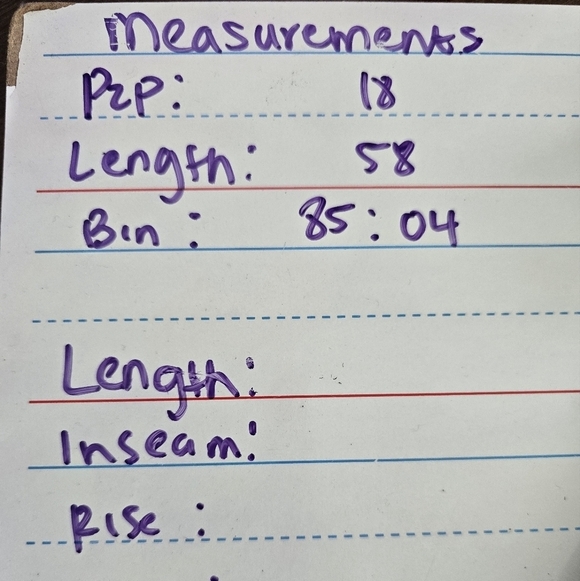 Measurements
P2P: 18
Length: 58
Bin: 85:04
Length:
Inseam:
Rise: